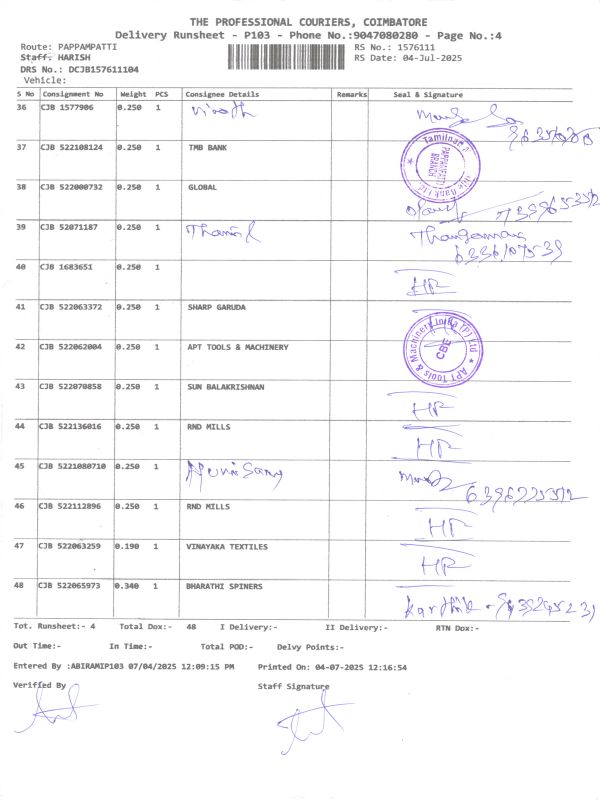 THE PROFESSIONAL COURIERS, COIMBATORE
Delivery Runsheet - P103 - Phone No.:9047080280 - Page No.:4
Route: PAPPAMPATTI RS No.: 1576111
Staff. HARISH RS Date: 04-Jul-2025
DRS No.: DCJB157611104
Vehicle:
S No Consignment No Weight PCS Consignee Details Remarks Seal & Signature
36 CJB 1577906 0.250 1
37 CJB 522108124 0.250 1 TMB BANK
PAPPAMPATTI BRANCH
38 CJB 522000732 0.250 1 GLOBAL
39 CJB 52071187 0.250 1
40 CJB 1683651 0.250 1 HR
41 CJB 522063372 0.250 1 SHARP GARUDA
42 CJB 522062004 0.250 1 APT TOOLS & MACHINERY
APT Tools & Machinery India (P) Ltd CBE
43 CJB 522070858 0.250 1 SUN BALAKRISHNAN HR
44 CJB 522136016 0.250 1 RND MILLS HR
45 CJB 5221080710 0.250 1
46 CJB 522112896 0.250 1 RND MILLS HR
47 CJB 522063259 0.190 1 VINAYAKA TEXTILES HR
48 CJB 522065973 0.340 1 BHARATHI SPINERS Karthik
Tot. Runsheet:- 4 Total Dox:- 48 I Delivery:- II Delivery:- RTN Dox:-
Out Time:- In Time:- Total POD:- Delvy Points:-
Entered By :ABIRAMIP103 07/04/2025 12:09:15 PM Printed On: 04-07-2025 12:16:54
Verified By Staff Signature